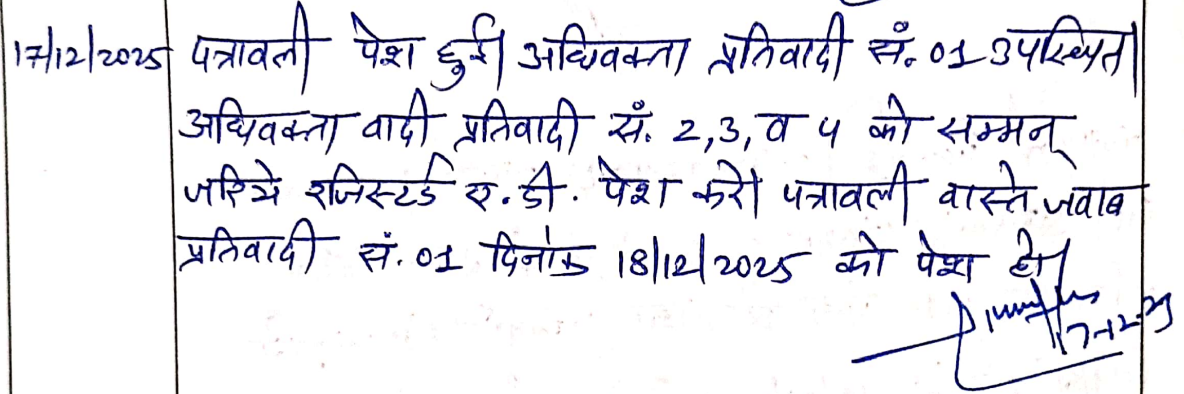 17/12/2025 पत्रावली पेश हुई। अधिवक्ता प्रतिवादी सं. 01 उपस्थित।
अधिवक्ता वादी प्रतिवादी सं. 2,3, व 4 को सम्मन्
जरिये रजिस्टर्ड ए.डी. पेश करे। पत्रावली वास्ते जवाब
प्रतिवादी सं. 01 दिनांक 18/12/2025 को पेश हो।
17-12-25